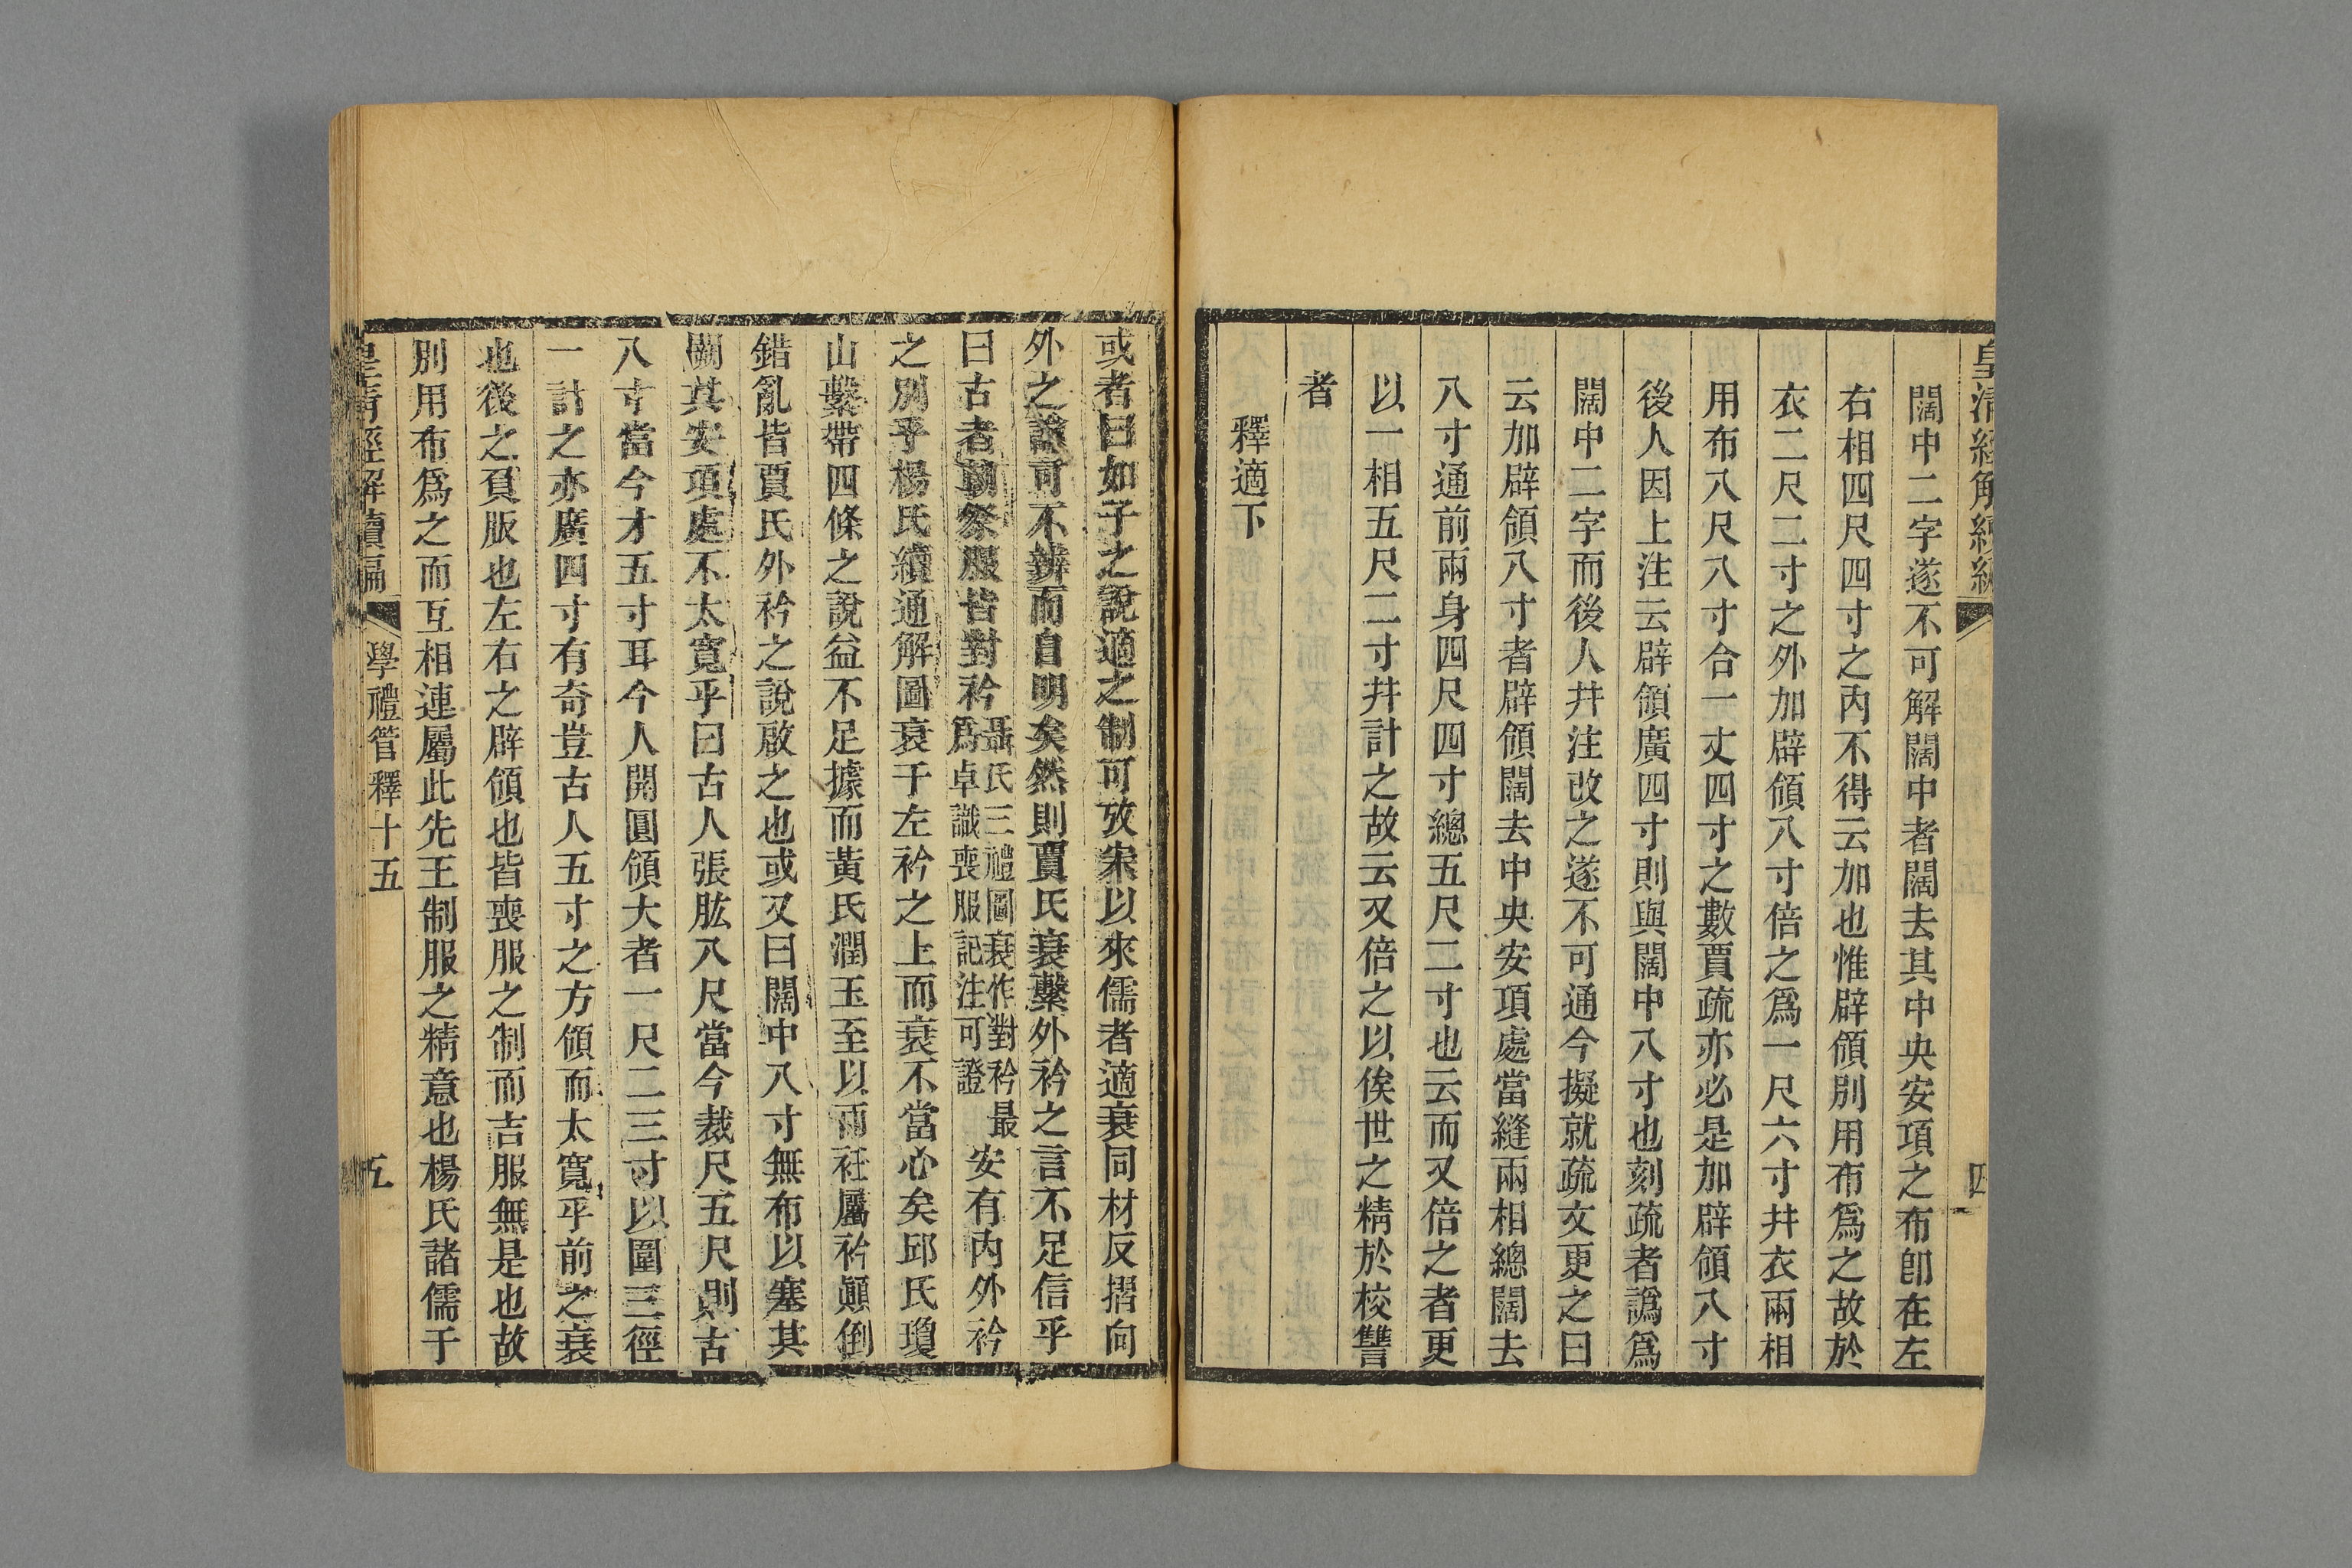 皇清經解續編
四
闊中二字遂不可解闊中者闊去其中央安項之布卽在左
右相四尺四寸之內不得云加也惟辟領別用布爲之故於
衣二尺二寸之外加辟領八寸倍之爲一尺六寸幷衣兩相
用布八尺八寸合一丈四寸之數賈疏亦必是加辟領八寸
後人因上注云辟領廣四寸則與闊中八寸也刻疏者譌爲
闊中二字而後人幷注改之遂不可通今擬就疏文更之曰
云加辟領八寸者辟領闊去中央安項處當縫兩相總闊去
八寸通前兩身四尺四寸總五尺二寸也云而又倍之者更
以一相五尺二寸幷計之故云又倍之以俟世之精於校讐
者
釋適下
或者曰如子之說適之制可攷宋以來儒者適衰同材反摺向
外之謬可不辨而自明矣然則賈氏衰繫外衿之言不足信乎
曰古者朝祭服皆對衿聶氏三禮圖衰作對衿最
爲卓識喪服記注可證安有內外衿
之別乎楊氏續通解圖衰于左衿之上而衰不當心矣邱氏瓊
山繫帶四條之說益不足據而黃氏潤玉至以兩衽屬衿顚倒
錯亂皆賈氏外衿之說啟之也或又曰闊中八寸無布以塞其
闕其安項處不太寬乎曰古人張肱八尺當今裁尺五尺則古
八寸當今才五寸耳今人開圓領大者一尺二三寸以圍三徑
一計之亦廣四寸有奇豈古人五寸之方領而太寬乎前之衰
也後之負版也左右之辟領也皆喪服之制而吉服無是也故
別用布爲之而互相連屬此先王制服之精意也楊氏諸儒于
皇清經解續編
學禮管釋十五
五